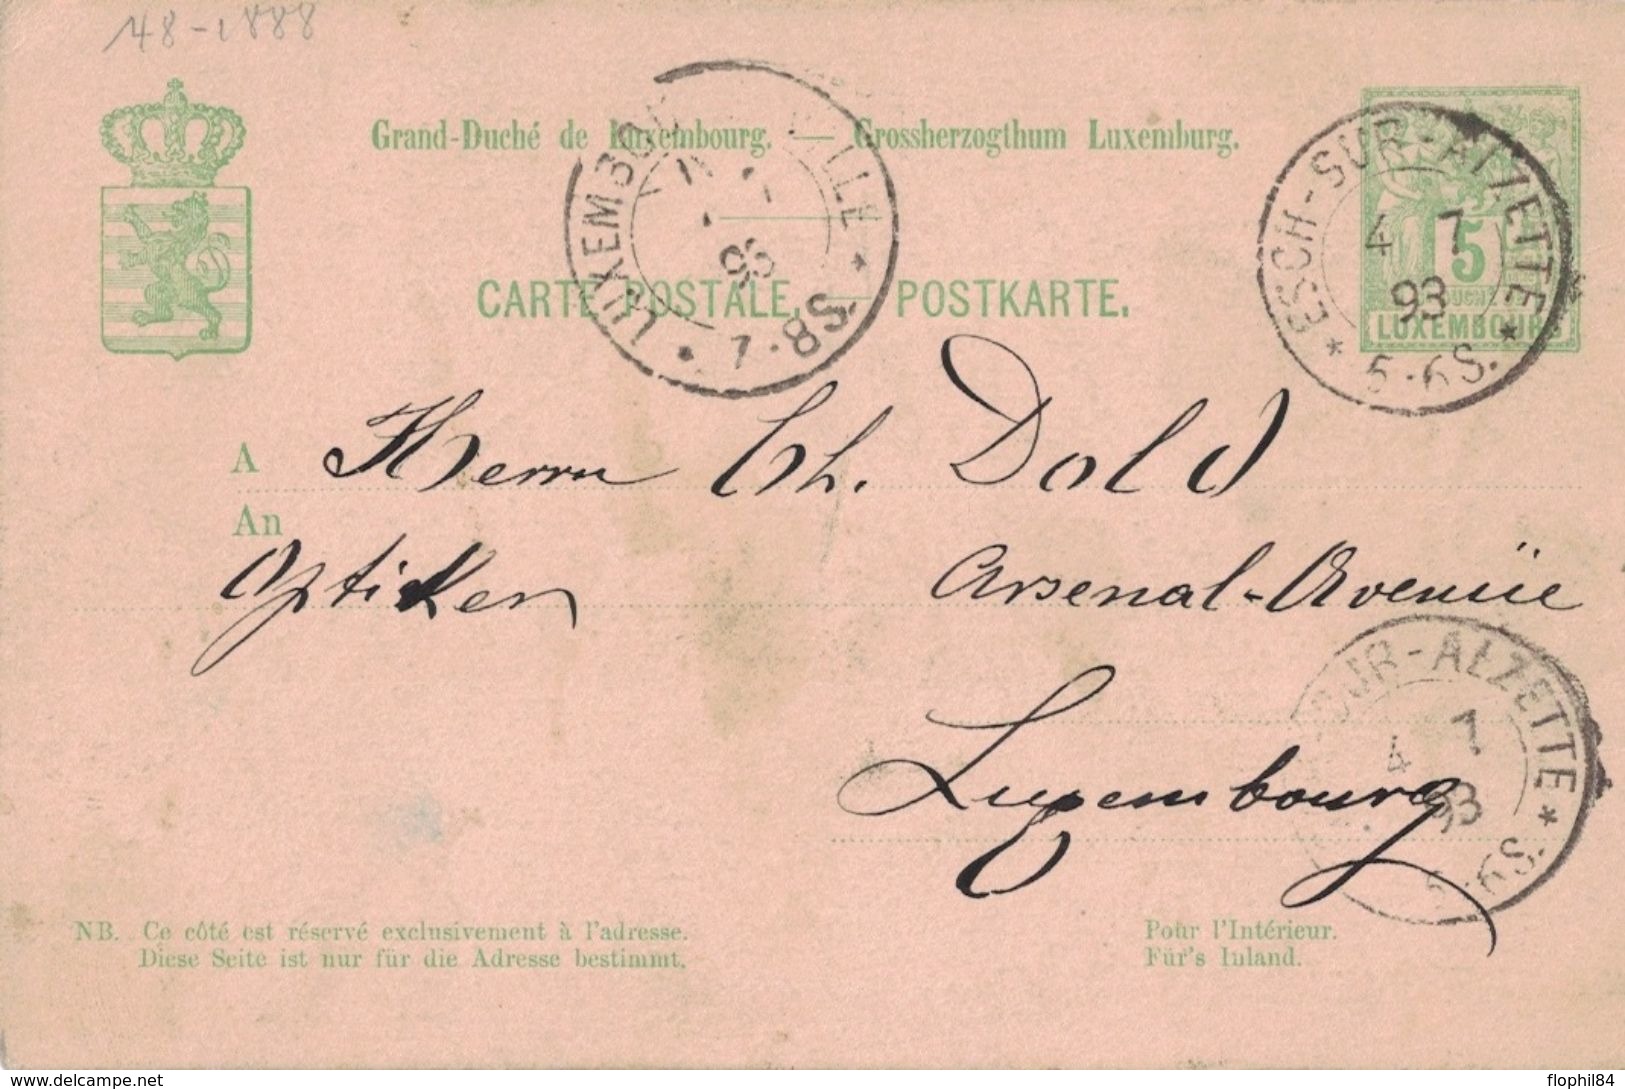 48-1888
Grand-Duché de Luxembourg. — Grossherzogthum Luxemburg.
CARTE POSTALE. — POSTKARTE.
LUXEMBOURG VILLE
7-8S.
ESCH-SUR-ALZETTE
4 7
93
5-6S.
5
LUXEMBOURG
A Herrn Ch. Dold
An
Optiker Arsenal-Avenüe
Luxembourg
SUR-ALZETTE
4 7
93
5-6S.
NB. Ce côté est réservé exclusivement à l'adresse.
Diese Seite ist nur für die Adresse bestimmt.
Pour l'Intérieur.
Für's Inland.
delcampe.net
flophil84